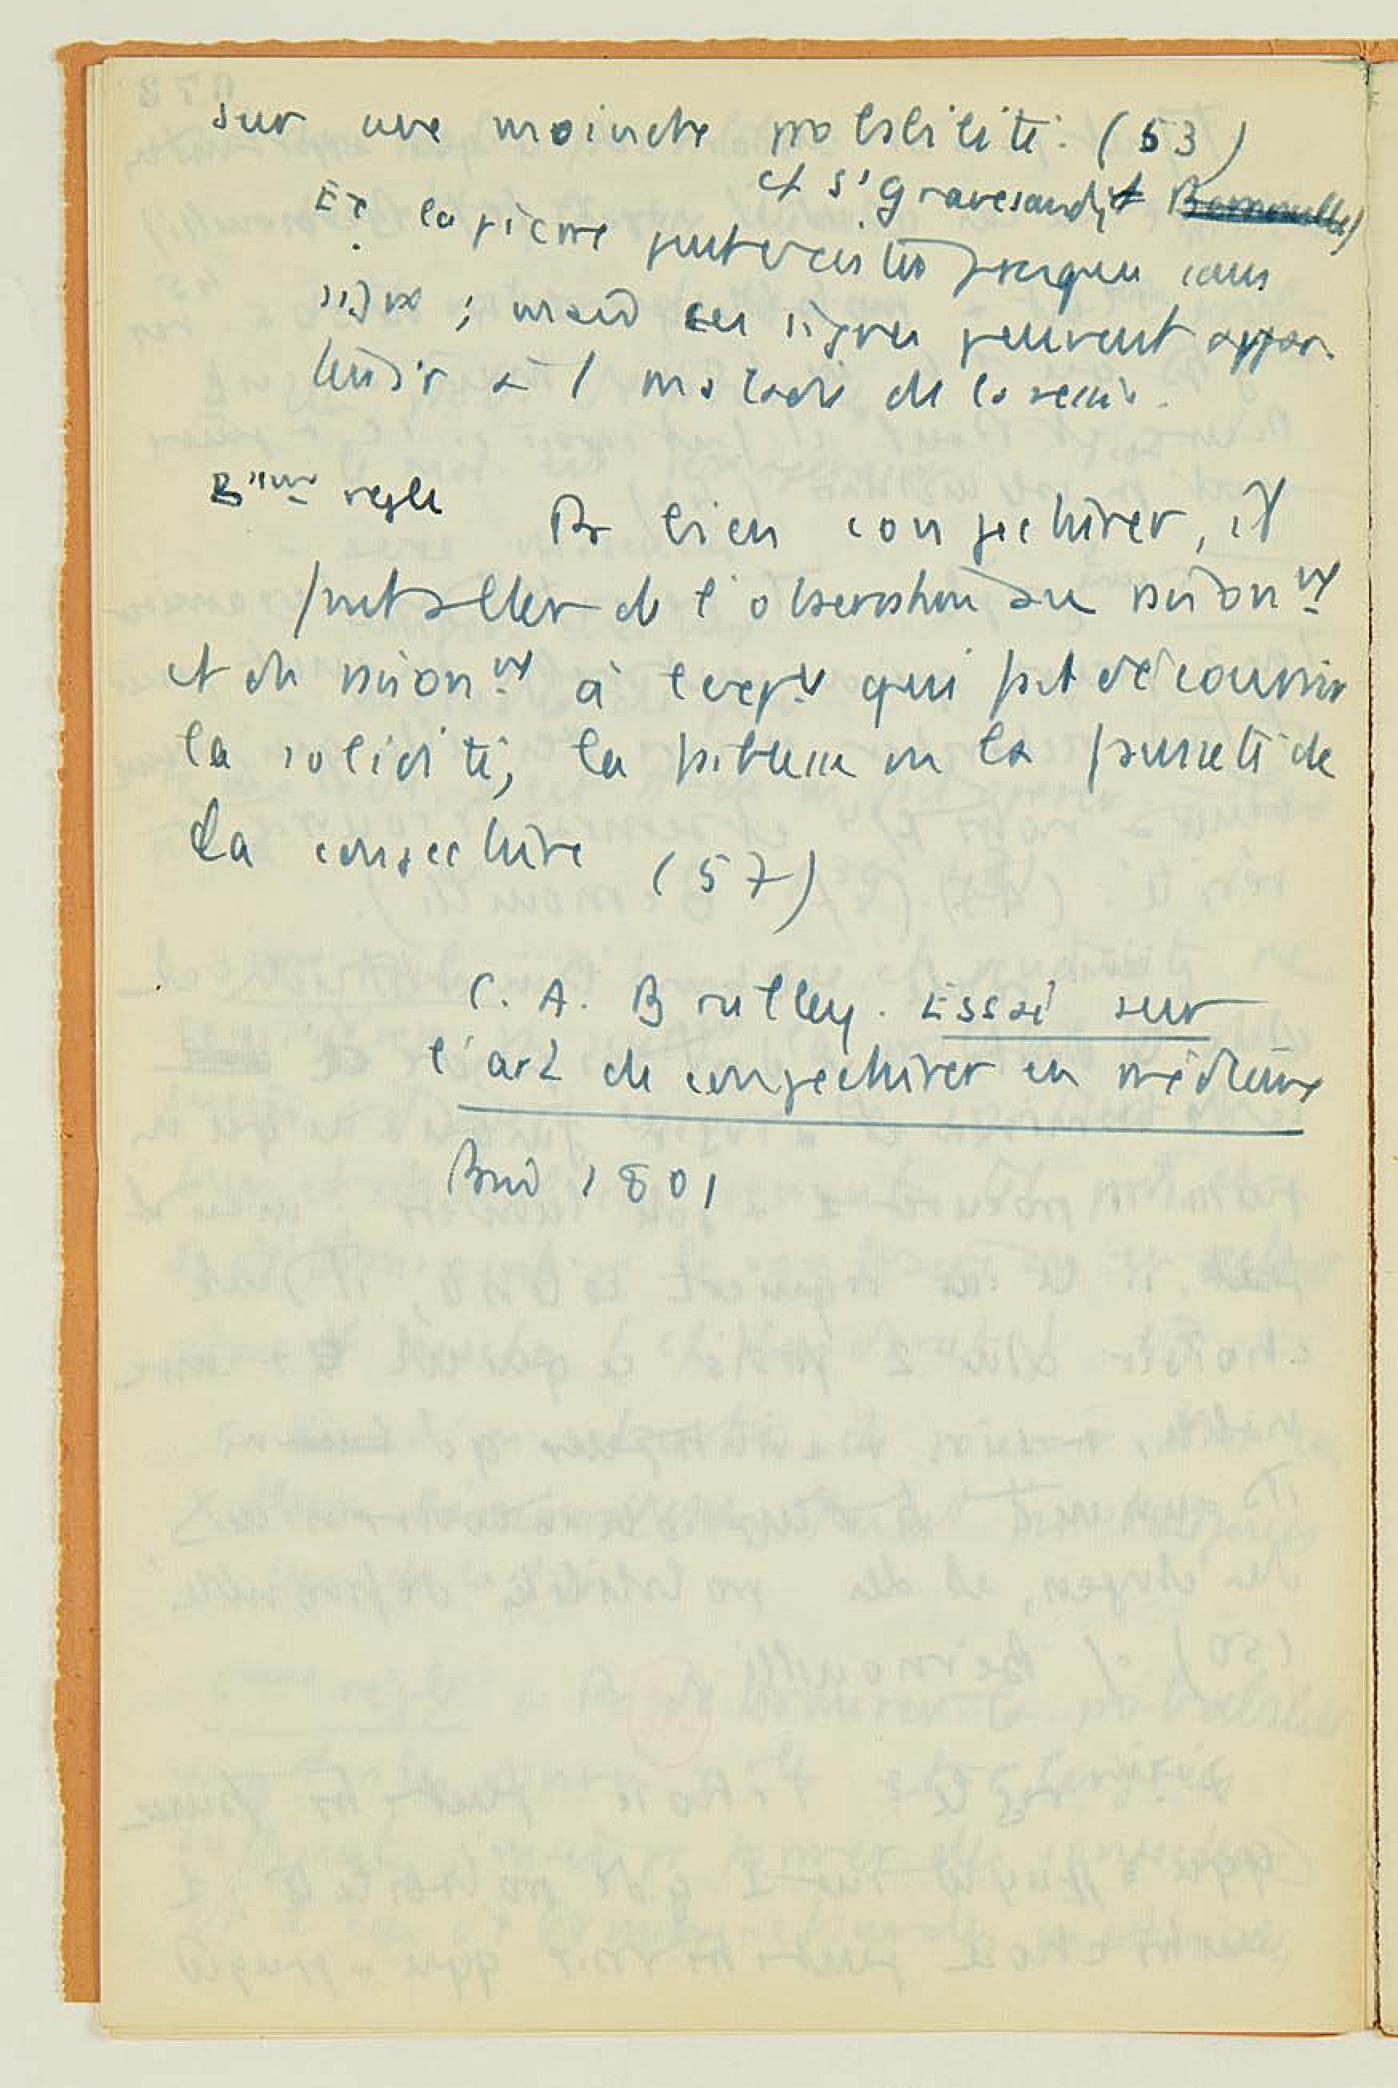 sur une moindre probabilité. (53)
cf s'Gravesand, et Bernouilli)
Ex la pierre peut exister presque sans
signes ; mais ces signes peuvent appar-
tenir à 1 maladie de la vessie.
règle Pr bien conjecturer, il
faut aller de l'observation au raisonnt
et du raisonnt à l'expce qui fait découvrir
la solidité, la faiblesse ou la fausseté de
La conjecture (57)
C. A. Brulley. Essai sur
l'art de conjecturer en médecine
Paris 1801